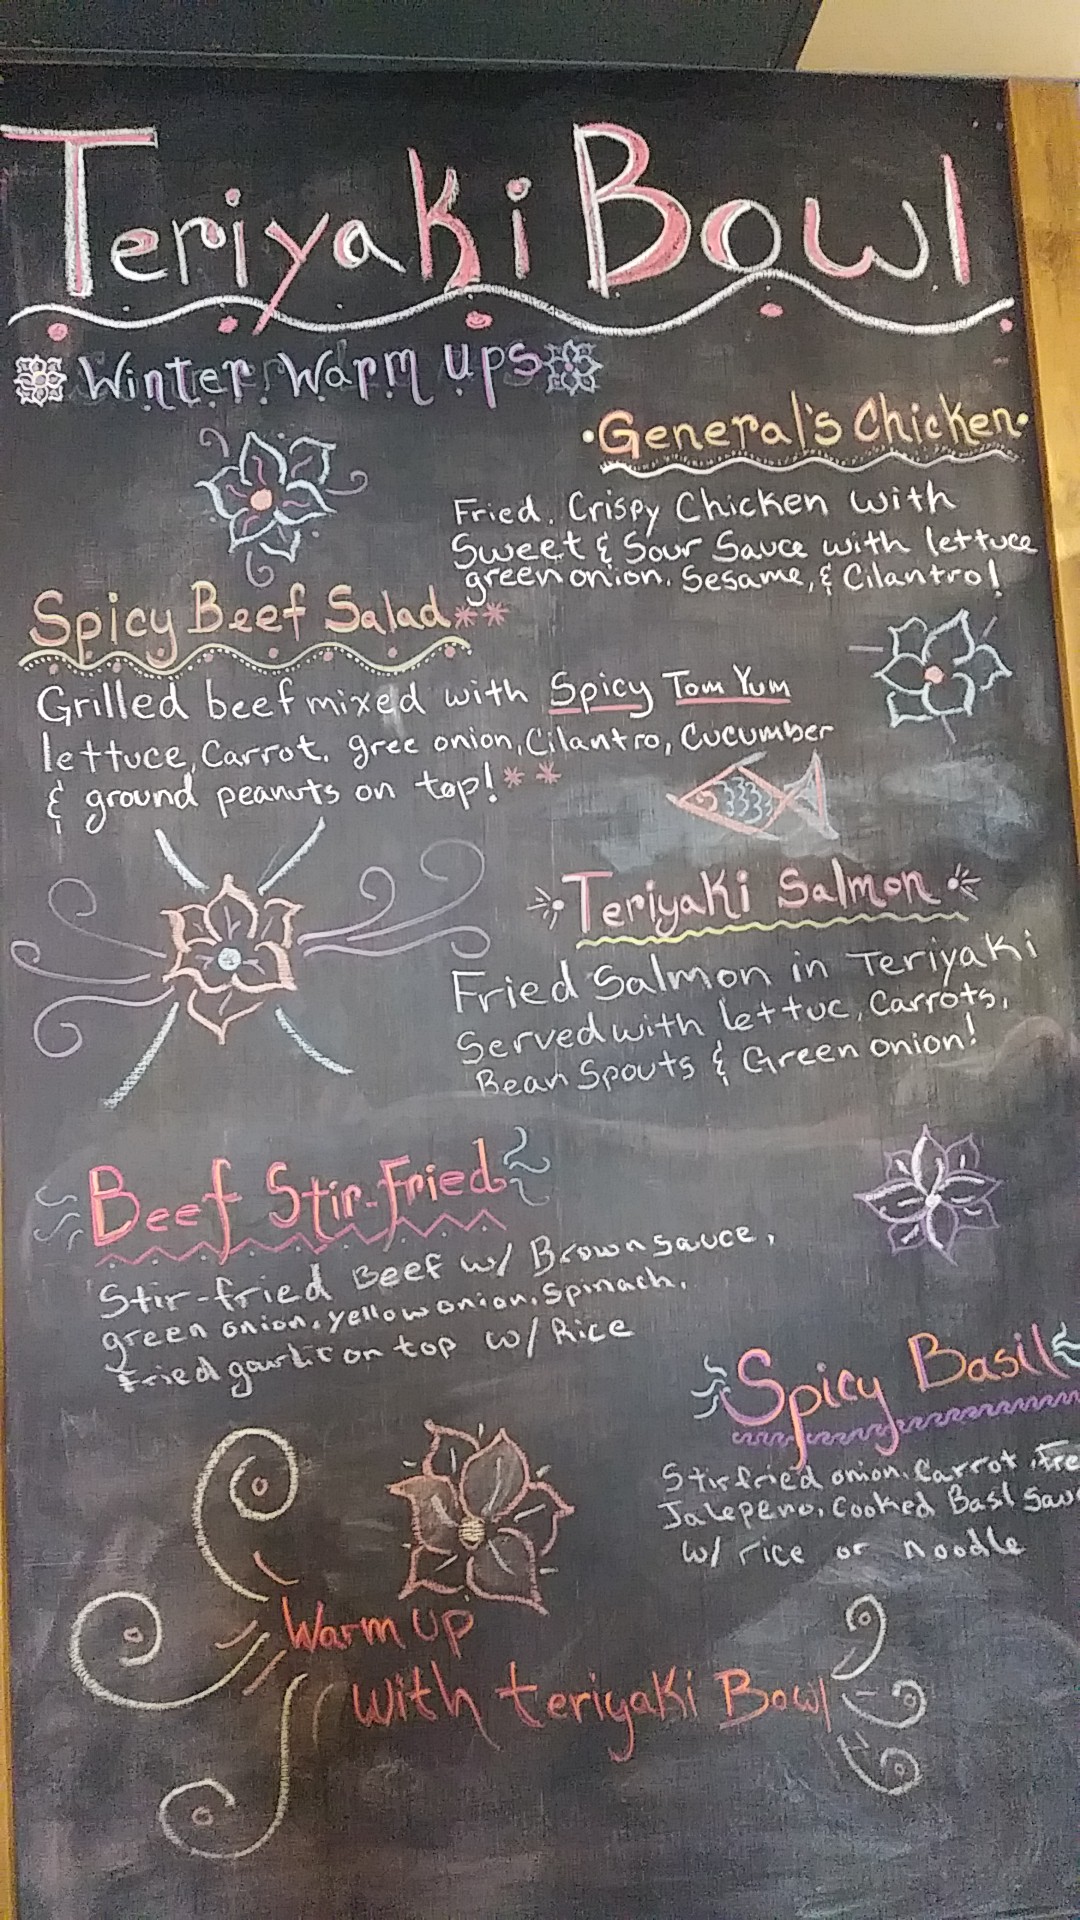 Teriyaki Bowl
Winter Warm Ups
General's Chicken
Fried, Crispy Chicken with
Sweet & Sour Sauce with lettuce
green onion, Sesame, & Cilantro!
Spicy Beef Salad**
Grilled beef mixed with Spicy Tom Yum
lettuce, Carrot, gree onion, Cilantro, Cucumber
& ground peanuts on top!**
Teriyaki Salmon
Fried Salmon in Teriyaki
Served with lettuc, Carrots,
Bean Spouts & Green onion!
Beef Stir-Fried
Stir-fried Beef w/ Brown sauce,
green onion, yellow onion, Spinach,
Fried garlic on top w/ Rice
Spicy Basil
Stirfried onion, Carrot,
Jalepeno, Cooked Basl
w/ rice or noodle
Warm up
with teriyaki Bowl